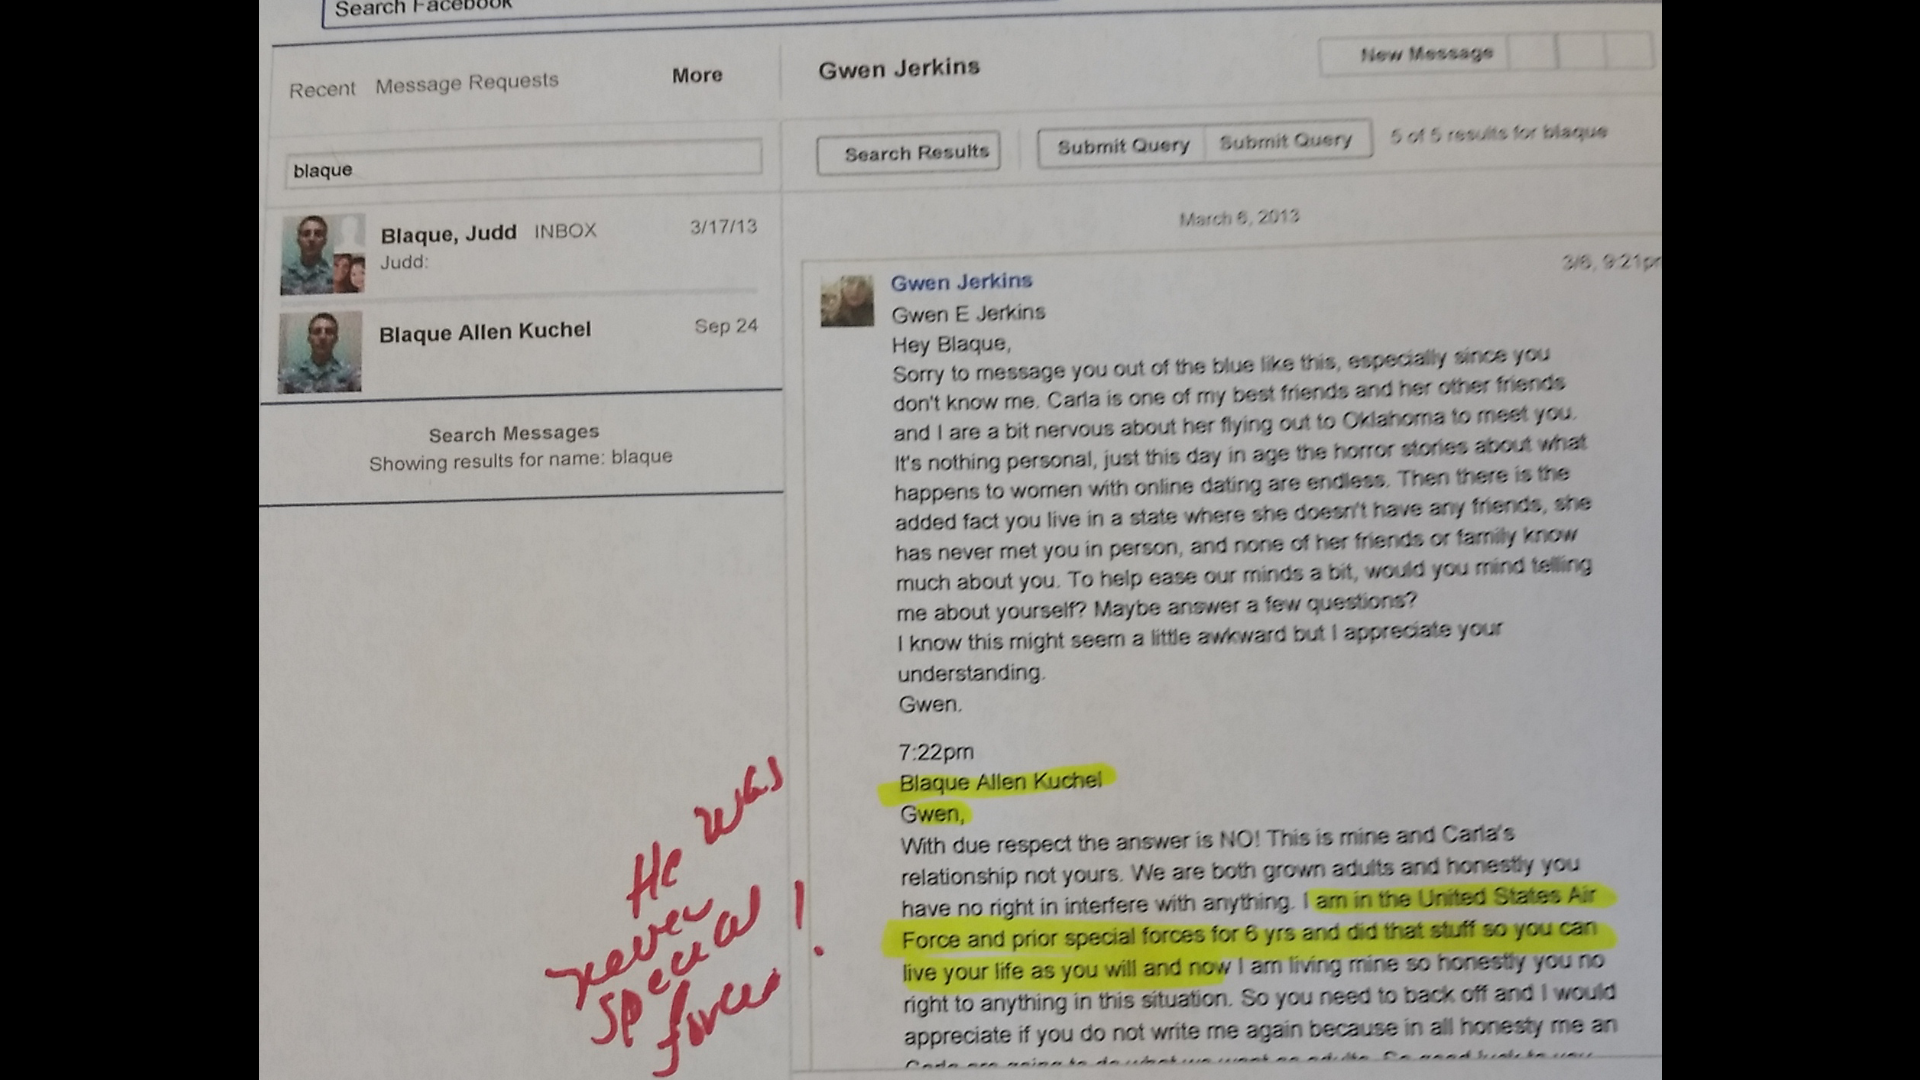 Search Facebook
Recent Message Requests More
Gwen Jerkins
New Message
blaque
Search Results
Submit Query Submit Query
5 of 5 results for blaque
Blaque, Judd INBOX 3/17/13
Judd:
Blaque Allen Kuchel Sep 24
Search Messages
Showing results for name: blaque
March 6, 2013
3/6, 9:21pm
Gwen Jerkins
Gwen E Jerkins
Hey Blaque,
Sorry to message you out of the blue like this, especially since you
don't know me. Carla is one of my best friends and her other friends
and I are a bit nervous about her flying out to Oklahoma to meet you.
It's nothing personal, just this day in age the horror stories about what
happens to women with online dating are endless. Then there is the
added fact you live in a state where she doesn't have any friends, she
has never met you in person, and none of her friends or family know
much about you. To help ease our minds a bit, would you mind telling
me about yourself? Maybe answer a few questions?
I know this might seem a little awkward but I appreciate your
understanding.
Gwen.
7:22pm
Blaque Allen Kuchel
Gwen,
With due respect the answer is NO! This is mine and Carla's
relationship not yours. We are both grown adults and honestly you
have no right in interfere with anything. I am in the United States Air
Force and prior special forces for 6 yrs and did that stuff so you can
live your life as you will and now I am living mine so honestly you no
right to anything in this situation. So you need to back off and I would
appreciate if you do not write me again because in all honesty me an
He was
never
special
forces!